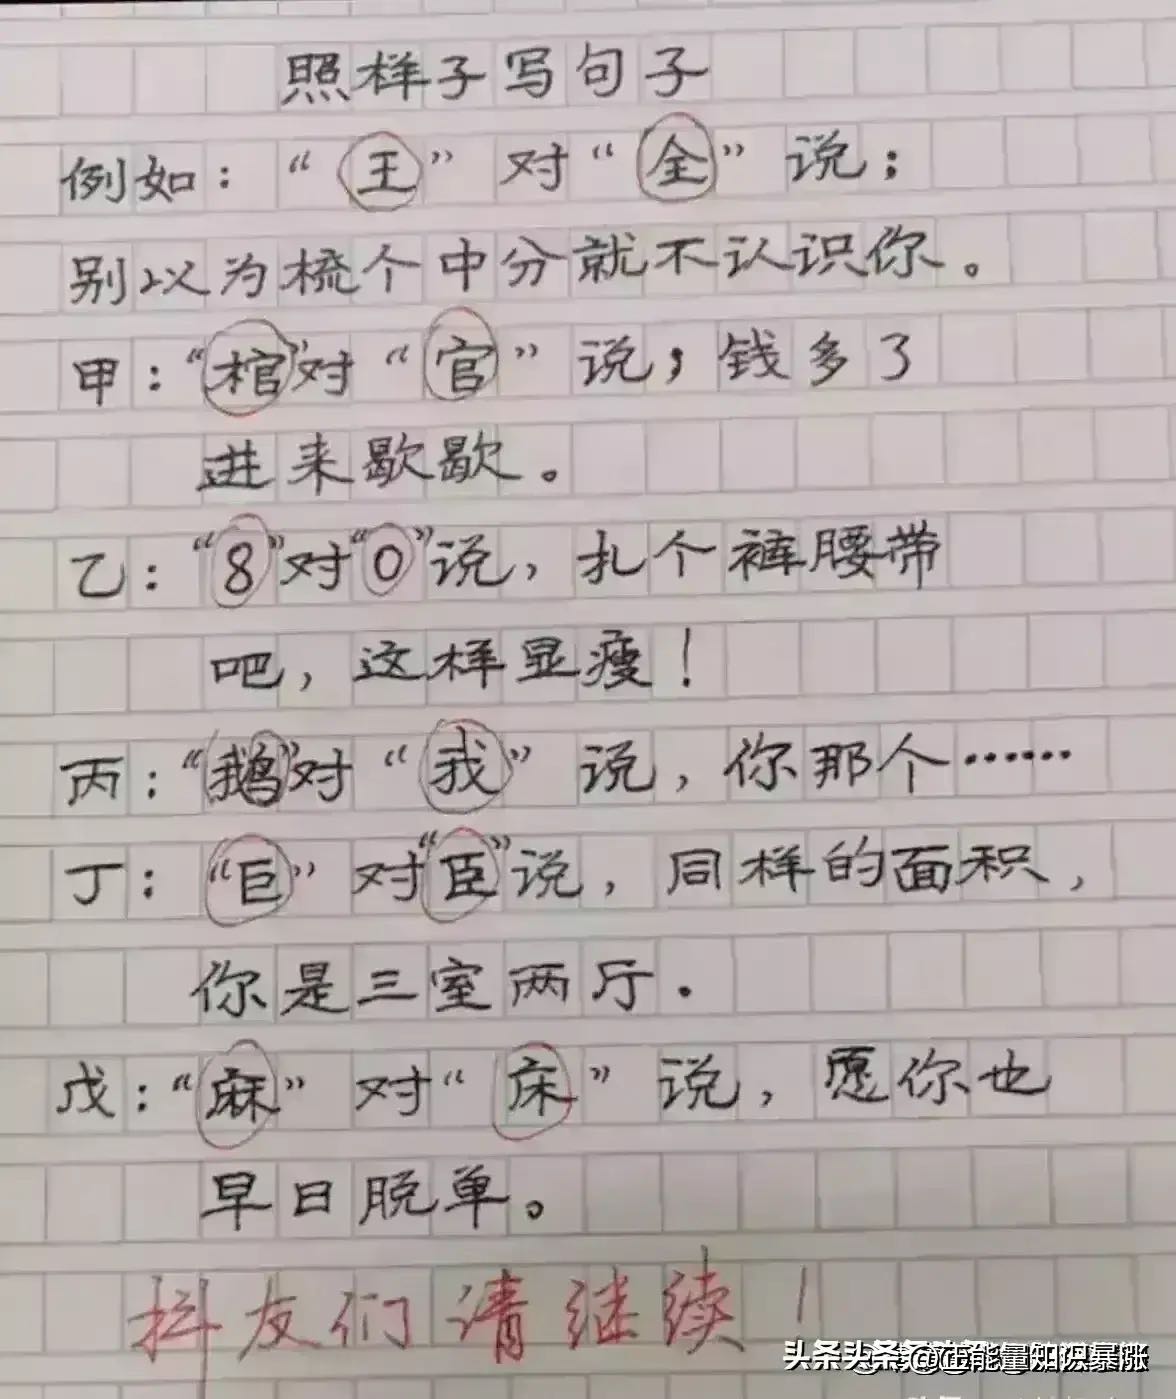 照样子写句子
例如：“王”对“全”说；
别以为梳个中分就不认识你。
甲：“棺”对“官”说，钱多了
进来歇歇。
乙：“8”对“0”说，扎个裤腰带
吧，这样显瘦！
丙：“鹅”对“我”说，你那个……
丁：“巨”对“臣”说，同样的面积，
你是三室两厅.
戊：“麻”对“床”说，愿你也
早日脱单。
抖友们请继续！
头条头条
能量知识暴涨